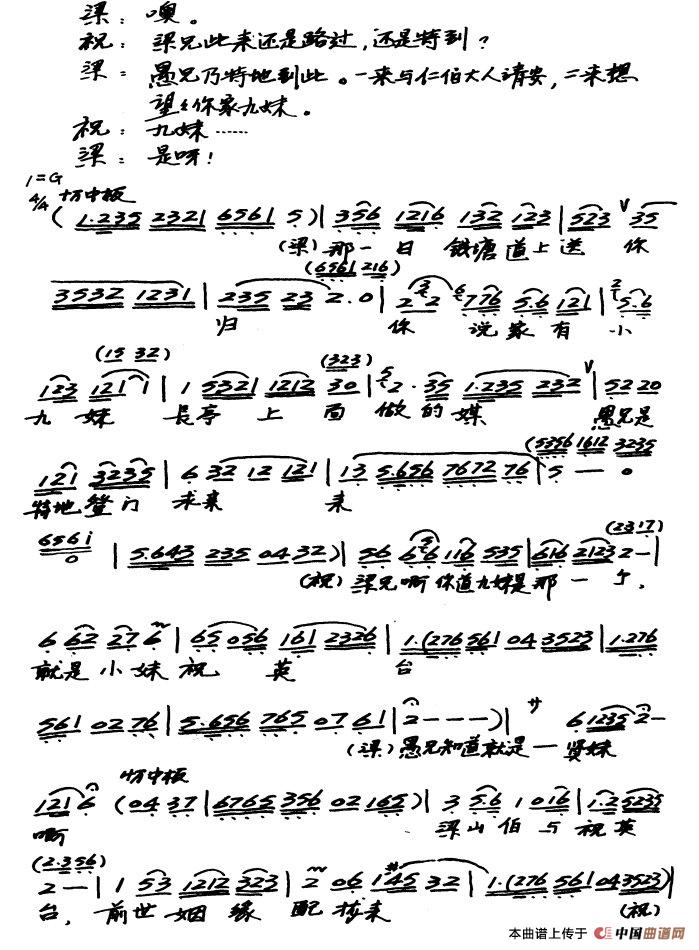 梁：噢。
祝：梁兄此来还是路过，还是特到？
梁：愚兄乃特地到此。一来与仁伯大人请安，二来想
望望你家九妹。
祝：九妹……
梁：是呀！
1=G
4/4 中板
(1.235 2321 6561 5)| 356 1216 132 123 | 523 V 35
(梁)那一日 钱塘道上送 你
(6561 216)
3532 1231 | 235 23 2.0 | 2 2 776 5.6 121 | 5.6
归 你 说家有小
(15 32) (323)
123 121 1 | 1 5321 1212 30 | 2. 35 1.235 232 V | 52 20
九妹 长亭上面做的媒 愚兄是
(5356 1612 3235
121 3235 | 6 32 12 121 | 13 5.656 7672 76 | 5 — — 0
特地登门 求亲 来
6561
0 | 5.643 235 04 32)| 56 6 6 116 535 | 616 2123 2 — |
(2317)
(祝)梁兄啊你道九妹是那一个，
6 62 27 6 | 65 056 161 2326 | 1.(276 561 04 3523 | 1.276
就是小妹祝 英 台
561 02 76 | 5.656 765 07 61 | 2 - - - )| サ 6 1235 2 -
(梁)愚兄知道就是一贤妹
中板
121 6 (04 37 | 6765 356 02 165)| 3 5.6 1 016 | 1.2 5235
啊 梁山伯与祝英
(2.3 56)
2 — | 1 53 1212 323 | 2 06 1 #45 32 | 1.(276 561 04 3523)|
台，前世姻缘配拢来 (祝)
本曲谱上传于 中国曲谱网